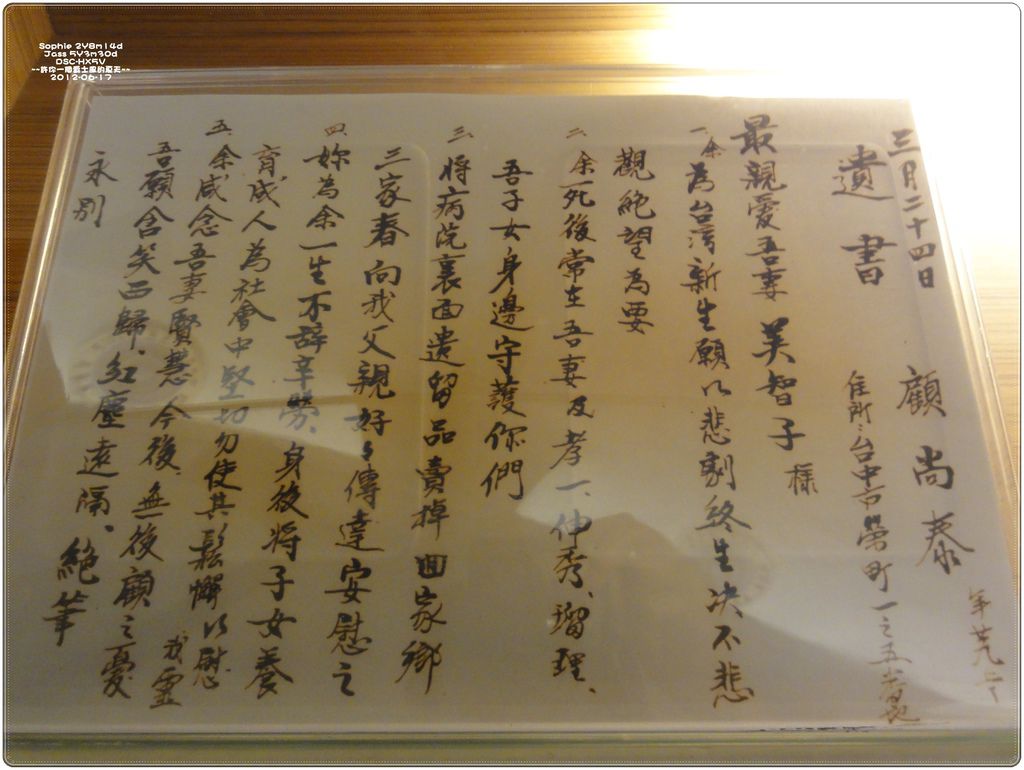 Sophie 2Y8m14d
Jass 5Y3m30d
DSC-HX5V
2012-06-17
三月二十四日 顧尚泰
住所:台中市榮町一之五番地
遺書
最親愛吾妻 美智子 樣
一、余為台灣新生願以悲劇終生決不悲
觀絶望為要
二、余一死後常在吾妻及孝一、伸秀、瑠理、
吾子女身邊守護你們
三、將病院裏面遺留品賣掉回家鄉
三家春向我父親好々傳達安慰之
四、妳為余一生不辞辛勞、身後將子女養
育成人為社會中堅切勿使其鬆懈以慰我靈
五、余感念吾妻賢慧今後無後顧之憂
吾願含笑西歸、紅塵遠隔、絶筆
永別